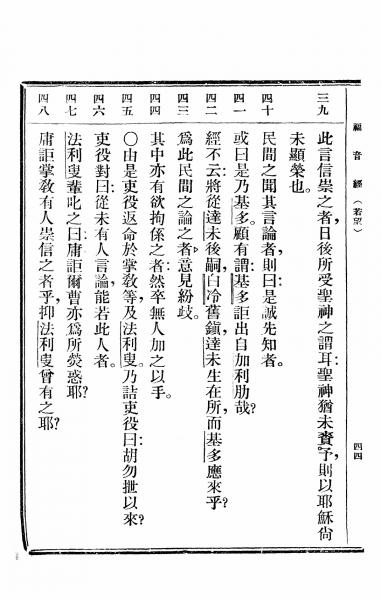 福音經（若望）
四四
三九
此言信崇之者，日後所受聖神之謂耳：聖神猶未賚予，則以耶穌尙
未顯榮也。
四十
民間之聞其言論者，則曰：是誠先知者。
四一
或曰：是乃基多。顧有謂：基多詎出自加利肋哉？
四二
經不云：將從達未後嗣，白冷舊鎭，達未生在所，而基多應來乎？
四三
爲此民間之論之者，意見紛歧。
四四
其中亦有欲拘係之者，然卒無人加之以手。
四五
〇由是吏役返命於掌敎等，及法利叟。乃詰吏役曰：胡勿抴以來？
四六
吏役對曰：從未有人言論，能若此人者。
四七
法利叟輩叱之曰：庸詎爾曹亦爲所熒惑耶？
四八
庸詎掌敎有人崇信之者乎，抑法利叟曾有之耶？